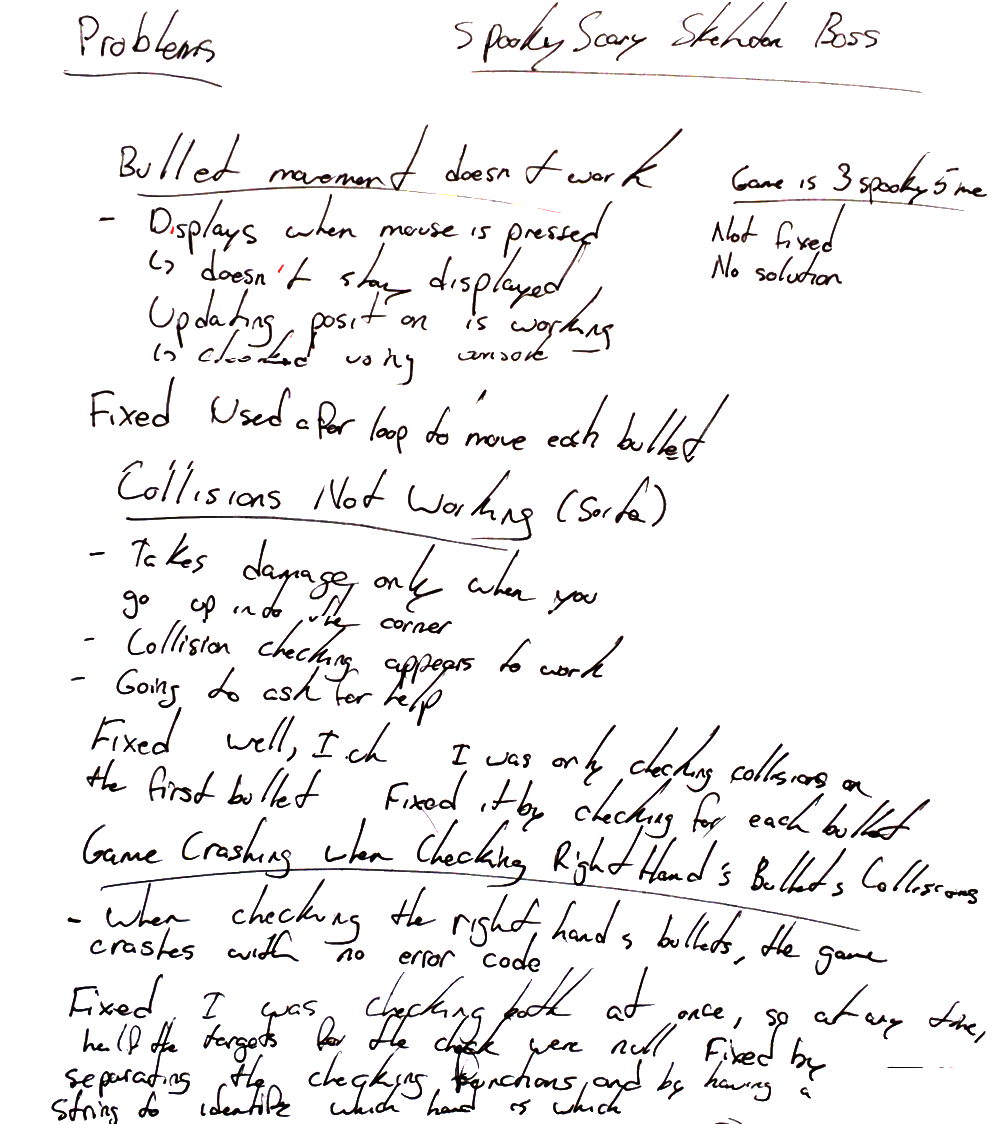 Problems
Spooky Scary Skeleton Boss
Bullet movement doesn't work
- Displays when mouse is pressed
↳ doesn't stay displayed
Updating position is working
↳ checked using console
Fixed Used a for loop to move each bullet
Game is 3 spooky 5 me
Not fixed
No solution
Collisions Not Working (Sorta)
- Takes damage only when you
go up into the corner
- Collision checking appears to work
- Going to ask for help
Fixed well, I I was only checking collisions on
the first bullet Fixed it by checking for each bullet
Game Crashing when Checking Right Hand's Bullets Collisions
- When checking the right hands bullets, the game
crashes with no error code
Fixed, I was checking both at once, so at any time,
half the targets for the check were null. Fixed by
separating the checking functions, and by having a
string to identify which hand is which